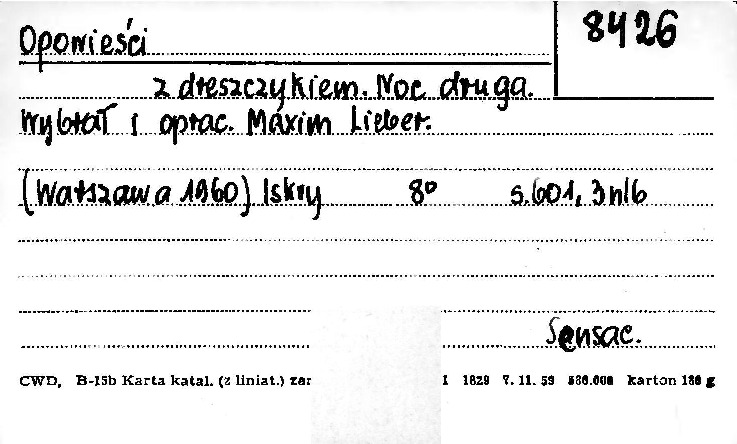 8426
Opowieści
z dreszczykiem. Noc druga.
Wybrał i oprac. Maxim Lieber.
(Warszawa 1960) Iskry 8° s. 601, 3 nlb
Sensac.
CWD, B-15b Karta katal. (z liniat.) zar 1 1829 7. 11. 59 580.000 karton 180 g